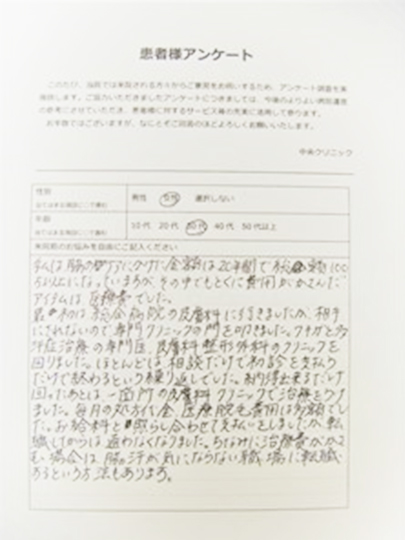 患者様アンケート
このたび、当院では来院される方々からご意見をお伺いするため、アンケート調査を実
施致します。ご協力いただきましたアンケートにつきましては、今後のよりよい病院運営
の参考にさせていただき、患者様に対するサービス等の充実に活用して参ります。
お手数ではございますが、なにとぞご回答のほどよろしくお願いいたします。
中央クリニック
性別
男性 女性 選択しない
年齢
10代 20代 30代 40代 50代以上
来院前のお悩みを自由にご記入ください
私は脇のケアにかけた金額は20年間で総額100
万以上になっていますが、その中でもとくに費用がかさんだ
アイテムは医療費でした。
最初は総合病院の皮膚科に行きましたが、相手
にされないので専門クリニックの門を叩きました。ワキガと多
汗症治療の専門医、皮膚科整形外科のクリニックを
回りました。ほとんどは相談だけで初診を支払う
だけで終わるという繰り返しでした。納得出来るだけ
回ったあとは、一箇所の皮膚科クリニックで治療をうけ
ました。毎月の処方代金、医療脱毛費用は多額でし
た。お給料と照らし合わせて支払いをしましたが、転
職してからは通わなくなりました。ちなみに治療費がかかる
場合は、脇汗が気にならない職場に転職
するという方法もあります。